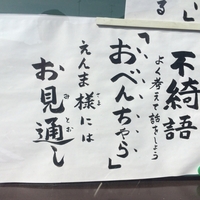 不綺語
よく考えて話をしよう
「おべんちゃら」
えんま様には
お見通し
る